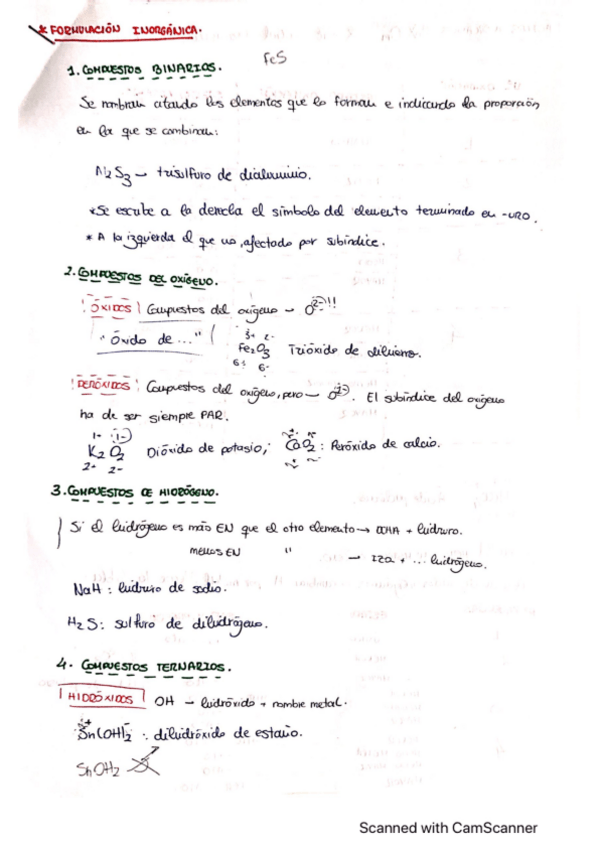 * FORMULACIÓN INORGÁNICA.
FeS
1. COMPUESTOS BINARIOS.
Se nombran citando los elementos que lo forman e indicando la proporción
en la que se combinan:
Al2S3 – trisulfuro de dialuminio.
*Se escribe a la derecha el símbolo del elemento terminado en -URO.
* A la izquierda el que va, afectado por subíndice.
2. COMPUESTOS DEL OXÍGENO.
ÓXIDOS Compuestos del oxígeno – O2-!!
"Óxido de ..."
3+ 2-
Fe2O3 Trióxido de dihierro.
6+ 6-
PERÓXIDOS Compuestos del oxígeno, pero – O. El subíndice del oxígeno
ha de ser siempre PAR.
1- 1-
K2O2 Dióxido de potasio; CaO2: Peróxido de calcio.
2+ 2-
3. COMPUESTOS DE HIDRÓGENO.
Si el hidrógeno es más EN que el otro elemento → DCHA + hidruro.
menos EN " – IZQ + ... hidrógeno.
NaH : hidruro de sodio.
H2S : sulfuro de dihidrógeno.
4. COMPUESTOS TERNARIOS.
HIDRÓXIDOS OH – hidróxido + nombre metal.
Sn(OH)2 : dihidróxido de estaño.
SnOH2
Scanned with CamScanner